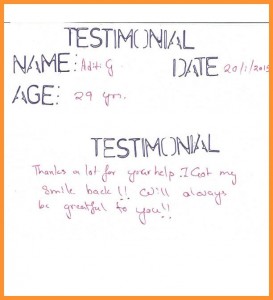 TESTIMONIAL
NAME: Aditi G DATE 20/1/2015
AGE: 29 yrs.
TESTIMONIAL
Thanks a lot for your help I Got my
smile back!! Will always
be greatful to you!!